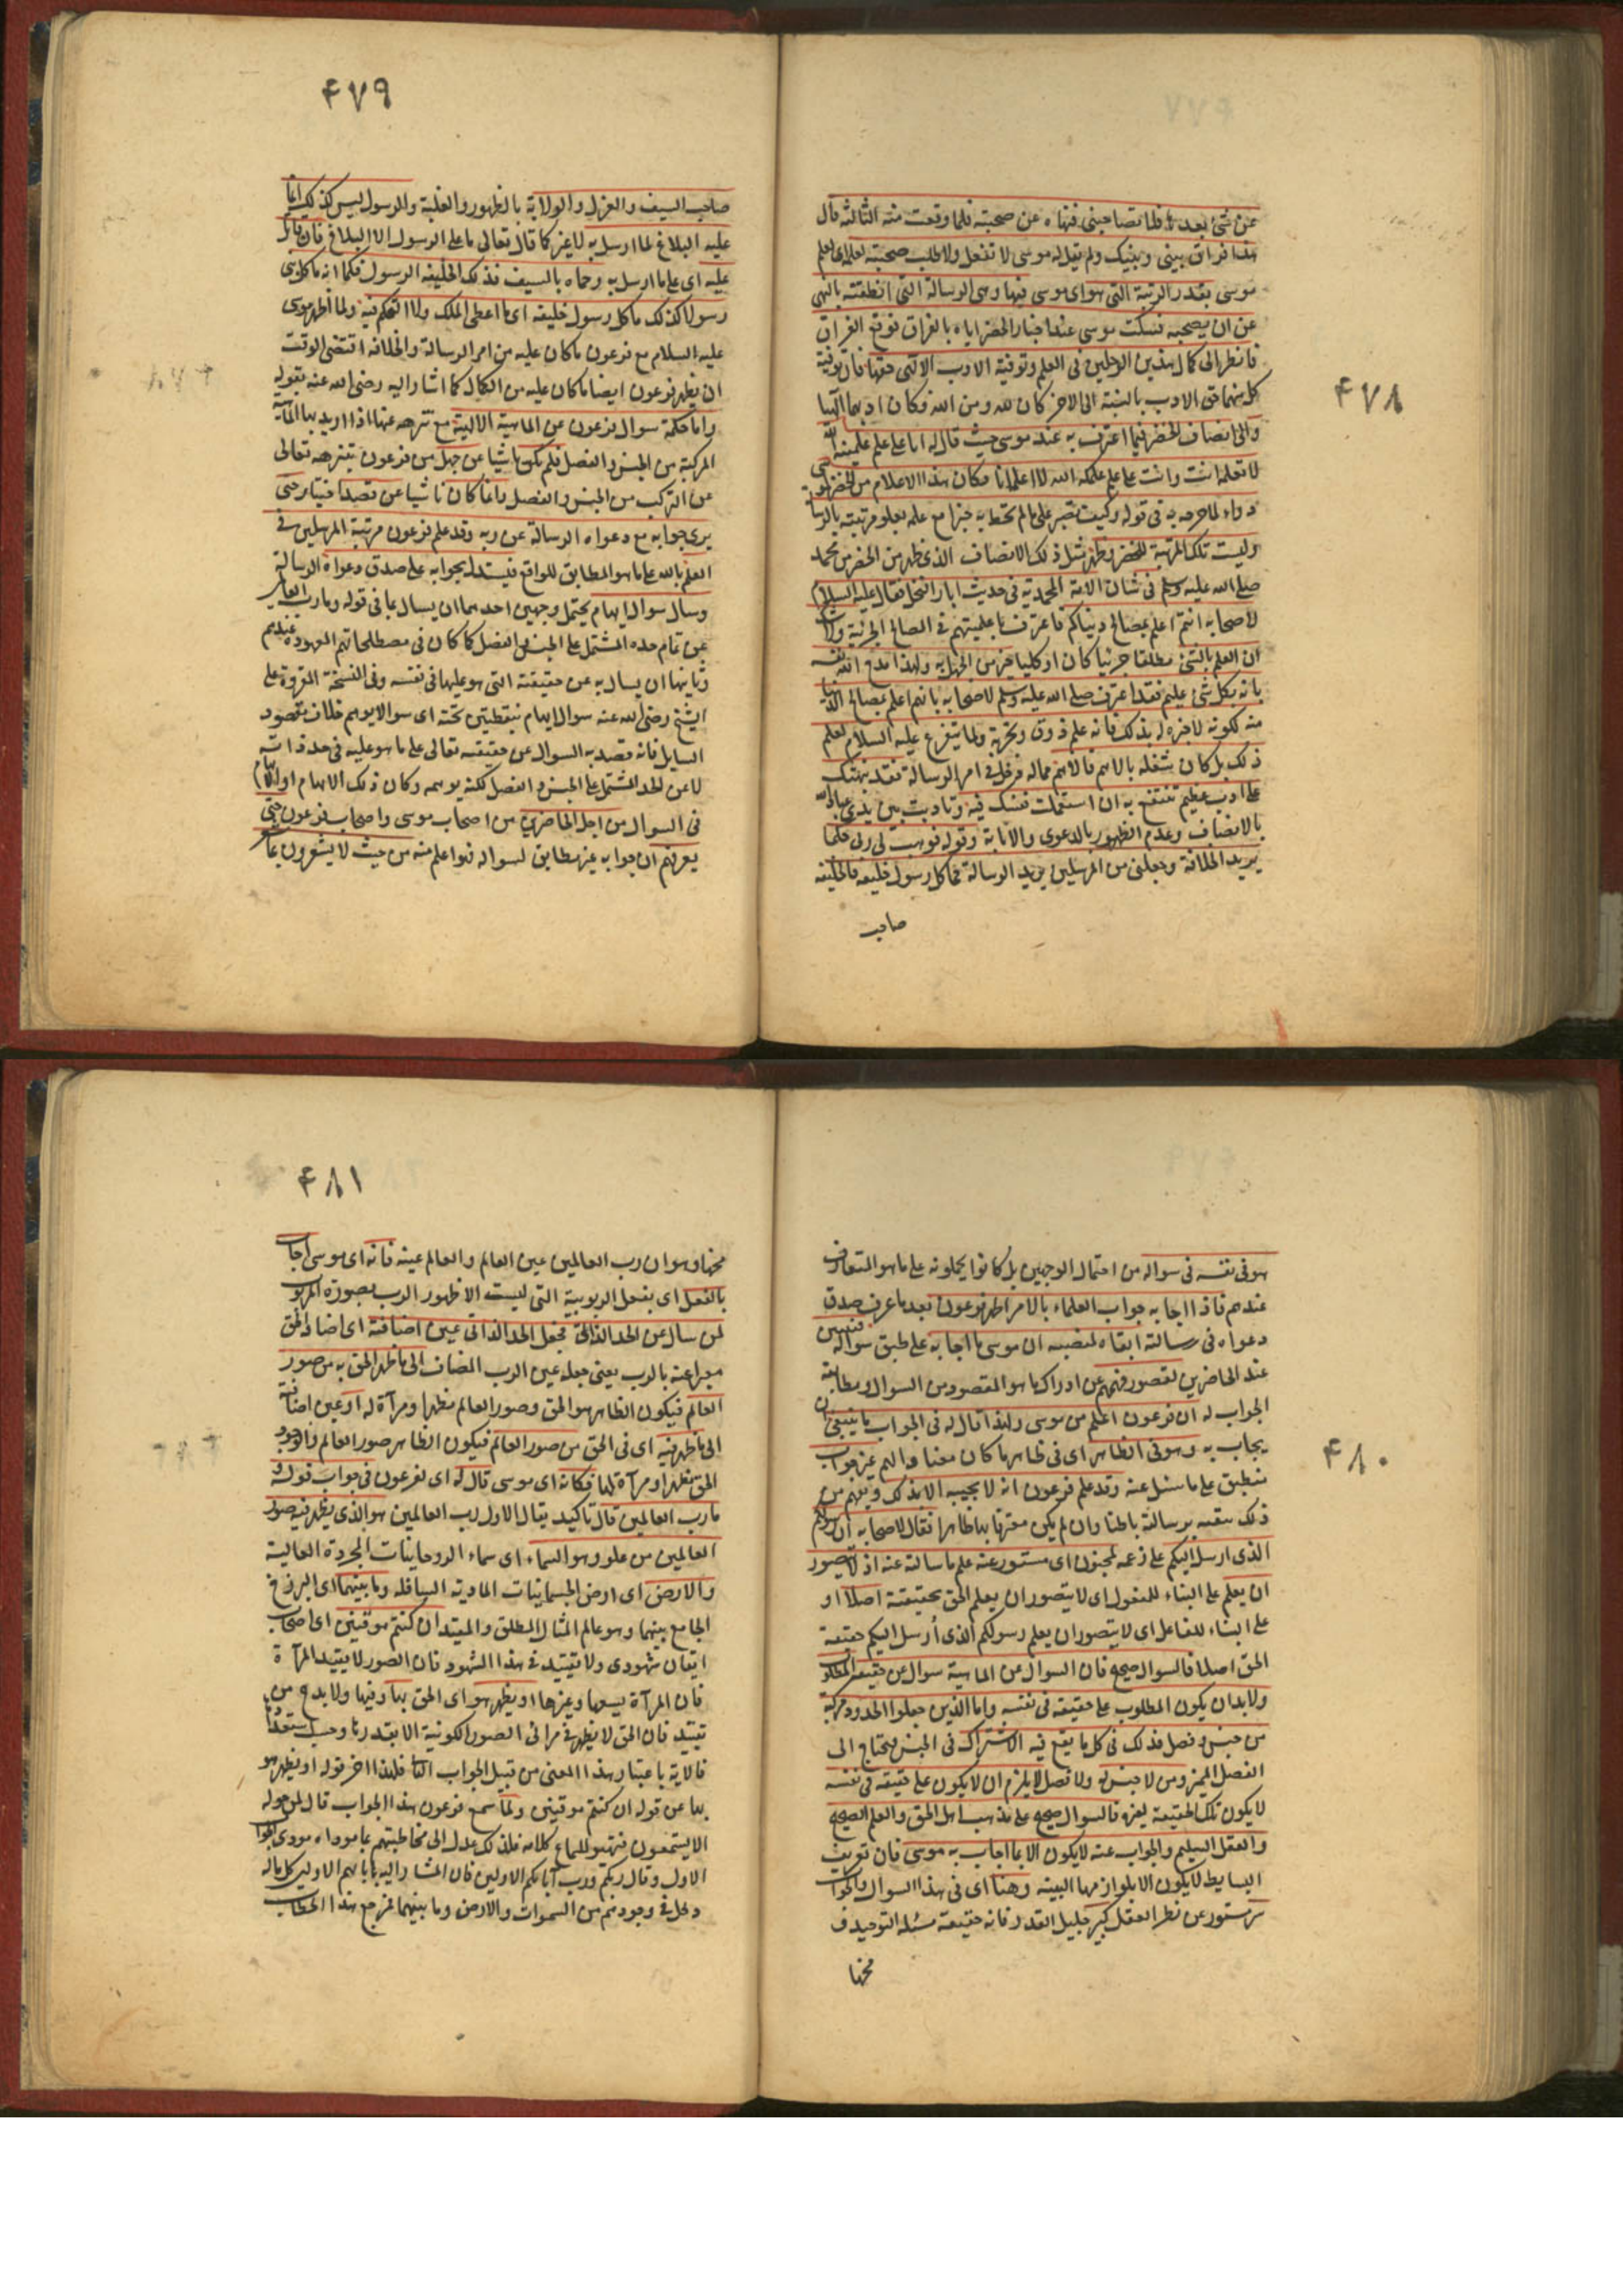 ۴۷۸
عن شئ بعدها فلا تصاحبنی فنهاه عن صحبته فلما وقعت منه الثالثة قال
هذا فراق بینی وبینک ولم یقل له موسی لا تفعل ولا طلب صحبته لعلمه ای لعلم
موسی بقدر الرتبة التی هو ای موسی فیها وهی الرسالة التی انطقته بالنهی
عن ان یصحبه فسکت موسی عند اخبار الخضر ایاه بالفراق فوقع الفراق
فانظر الی کمال هذین الرجلین فی العلم وتوفیة الادب الالهی حقها فان توفیة
کل منهما حق الادب بالنسبة الی الاخر کان لله ومن الله وکان ادبهما الهیا
والی انصاف الخضر فیما اعترف به عند موسی حیث قال له انا علی علم علمنیه الله
لا تعلمه انت وانت علی علم علمکه الله لا اعلمه انا فکان هذا الاعلام من الخضر لموسی
دواء لما جرحه به فی قوله وکیف تصبر علی ما لم تحط به خبرا مع علمه بعلو مرتبته بالرسالة
ولیست تلک المرتبة للخضر وظهر مثل ذلک الانصاف الذی ظهر من الخضر من محمد
صلی الله علیه وسلم فی شان الامة المحمدیة فی حدیث ابار النخل فقال علیه السلام
لاصحابه انتم اعلم بمصالح دنیاکم فاعترف باعلمیتهم فی المصالح الجزئیة ولا شک
ان العلم بالشئ مطلقا جزئیا کان او کلیا خیر من الجهل به ولهذا مدح الله نفسه
بانه بکل شئ علیم فقد اعترف صلی الله علیه وسلم لاصحابه بانهم اعلم بمصالح الدنیا
منه لکونه لا خبرة له بذلک فانه علم ذوق وتجربة ولم یتفرغ علیه السلام لعلم
ذلک بل کان شغله بالاهم فالاهم مما له مدخل فی امر الرسالة فقد نبهتک
علی ادب عظیم تنتفع به ان استعملت نفسک فیه وتادبت بین یدی عباد الله
بالانصاف وعدم الظهور بالدعوی والانابة وقوله فوهب لی ربی حکما
یرید الخلافة وجعلنی من المرسلین یرید الرسالة فما کل رسول خلیفة فالخلیفة
صاحب
۴۷۹
صاحب السیف والعزل والولایة بالظهور والغلبة والرسول لیس کذلک انما
علیه البلاغ لما ارسل به لا غیر کما قال تعالی ما علی الرسول الا البلاغ فان قاتل
علیه ای علی ما ارسل به وحماه بالسیف فذلک الخلیفة الرسول فکما انه ما کل نبی
رسولا کذلک ما کل رسول خلیفة ای ما اعطی الملک ولا التحکم فیه ولما اظهر موسی
علیه السلام مع فرعون ما کان علیه من امر الرسالة والخلافة اقتضی الوقت
ان یظهر فرعون ایضا ما کان علیه من الکمال کما اشار الیه رضی الله عنه بقوله
واما حکمة سوال فرعون عن الماهیة الالهیة مع تنزهه عنها اذا ارید بها الماهیة
المرکبة من الجنس والفصل فلم یکن ناشیا عن جهل من فرعون بتنزهه تعالی
عن الترکب من الجنس والفصل وانما کان ناشیا عن قصد اختبار حتی
یری جوابه مع دعواه الرسالة عن ربه وقد علم فرعون مرتبة المرسلین فی
العلم بالله علی ما هو المطابق للواقع فیستدل بجوابه علی صدق دعواه الرسالة
وسال سوال ایهام یحتمل وجهین احدهما ان یسال بما فی قوله وما رب العالمین
عن تمام حده المشتمل علی الجنس والفصل کما کان فی مصطلحاتهم المعهودة عندهم
وثانیهما ان یسال به عن حقیقته التی هو علیها فی نفسه وفی النسخة المقروة علی
الشیخ رضی الله عنه سوال ایهام بنقطتین تحته ای سوالا یوهم خلاف مقصود
السایل فانه قصد به السوال عن حقیقته تعالی علی ما هو علیه فی حد ذاته
لا عن الحد المشتمل علی الجنس والفصل لکنه یوهمه وکان ذلک الابهام او الایهام
فی السوال من اجل الحاضرین من اصحاب موسی واصحاب فرعون حتی
یعرفهم ان جوابه غیر مطابق لسواله فهو اعلم منه من حیث لا یشعرون بما
۴۸۰
هو فی نفسه فی سواله من احتمال الوجهین بل کانوا یحملونه علی ما هو المتعارف
عندهم فاذا اجابه جواب العلماء بالامر اظهر فرعون بعد ما عرف صدق
دعواه فی رسالته ابقاء لمنصبه ان موسی ما اجابه علی طبق سواله فتبین
عند الحاضرین لقصور فهمهم عن ادراک ما هو المقصود من السوال ومطابقة
الجواب له ان فرعون اعلم من موسی ولهذا قال له فی الجواب ما ینبغی ان
یجاب به وهو فی الظاهر ای فی ظاهر ما کان معتادا لهم غیر جواب
منطبق علی ما سئل عنه وقد علم فرعون انه لا یجیبه الا بذلک ویفهم من
ذلک یقینه برسالته باطنا وان لم یکن معترفا بها ظاهرا فقال لاصحابه ان رسولکم
الذی ارسل الیکم علی زعمه لمجنون ای مستور عنه علم ما سالته عنه اذ لا یتصور
ان یعلم علی البناء للمفعول ای لا یتصور ان یعلم الحق بحقیقته اصلا او
علی البناء للفاعل ای لا یتصور ان یعلم رسولکم الذی أرسل الیکم حقیقة
الحق اصلا فالسوال صحیح فان السوال عن الماهیة سوال عن حقیقة المطلوب
ولا بد ان یکون المطلوب علی حقیقة فی نفسه واما الذین جعلوا الحدود مرکبة
من جنس وفصل فذلک فی کل ما یقع فیه الاشتراک فی الجنس فیحتاج الی
الفصل الممیز ومن لا جنس له ولا فصل لا یلزم ان لا یکون علی حقیقة فی نفسه
لا یکون تلک الحقیقة لغیره فالسوال صحیح علی مذهب اهل الحق والعلم الصحیح
والعقل السلیم والجواب عنه لا یکون الا بما اجاب به موسی فان تعریف
البسایط لا یکون الا بلوازمها البینة وهنا ای فی هذا السوال والجواب
سر مستور عن نظر العقل کبیر جلیل القدر فانه حقیقة مسئلة التوحید ف
مخها
۴۸۱
مخها وهو ان رب العالمین عین العالم والعالم عینه فانه ای موسی اجاب
بالفعل ای بفعل الربوبیة التی لیست الا ظهور الرب بصورة المربوب
لمن سال عن الحد الذاتی فجعل الحد الذاتی عین اضافته ای اضافة الحق
معبرا عنه بالرب یعنی جعله عین الرب المضاف الی ما ظهر الحق به من صور
العالم فیکون الظاهر هو الحق وصور العالم مظهرا ومرآة له او عین اضافته
الی ما ظهر فیه ای فی الحق من صور العالم فیکون الظاهر صور العالم والوجود
الحق مظهرا ومرآة لها فکانه ای موسی قال له ای لفرعون فی جواب قوله و
ما رب العالمین قال تاکید یقال الاول رب العالمین هو الذی یظهر فیه صور
العالمین من علو وهو السماء ای سماء الروحانیات المجردة العالیة
والارض ای ارض الجسمانیات المادیة السافلة وما بینهما ای البرزخ
الجامع بینهما وهو عالم المثال المطلق والمقید ان کنتم موقنین ای اصحاب
ایقان شهودی ولا تقید فی هذا الشهود فان الصور لا یقید المرآة
فان المرآة یسعها وغیرها او یظهر هو ای الحق بها وفیها ولا بد من
تقید فان الحق لا یظهر فی مرائی الصور الکونیة الا بقدرها وحسب استعدادها
فالایة باعتبار هذا المعنی من قبیل الجواب الثانی فلهذا اخر قوله او یظهر هو
بها عن قوله ان کنتم موقنین ولما سمع فرعون هذا الجواب قال لمن حوله
الا یستمعون فتهیوا لسماع کلامه فلذلک عدل الی مخاطبتهم بما موداه مودی الجواب
الاول وقال ربکم ورب آبائکم الاولین فان المشار الیه بابائهم الاولین کل ما له
دخل فی وجودهم من السموات والارض وما بینهما فمرجع هذا الخطاب